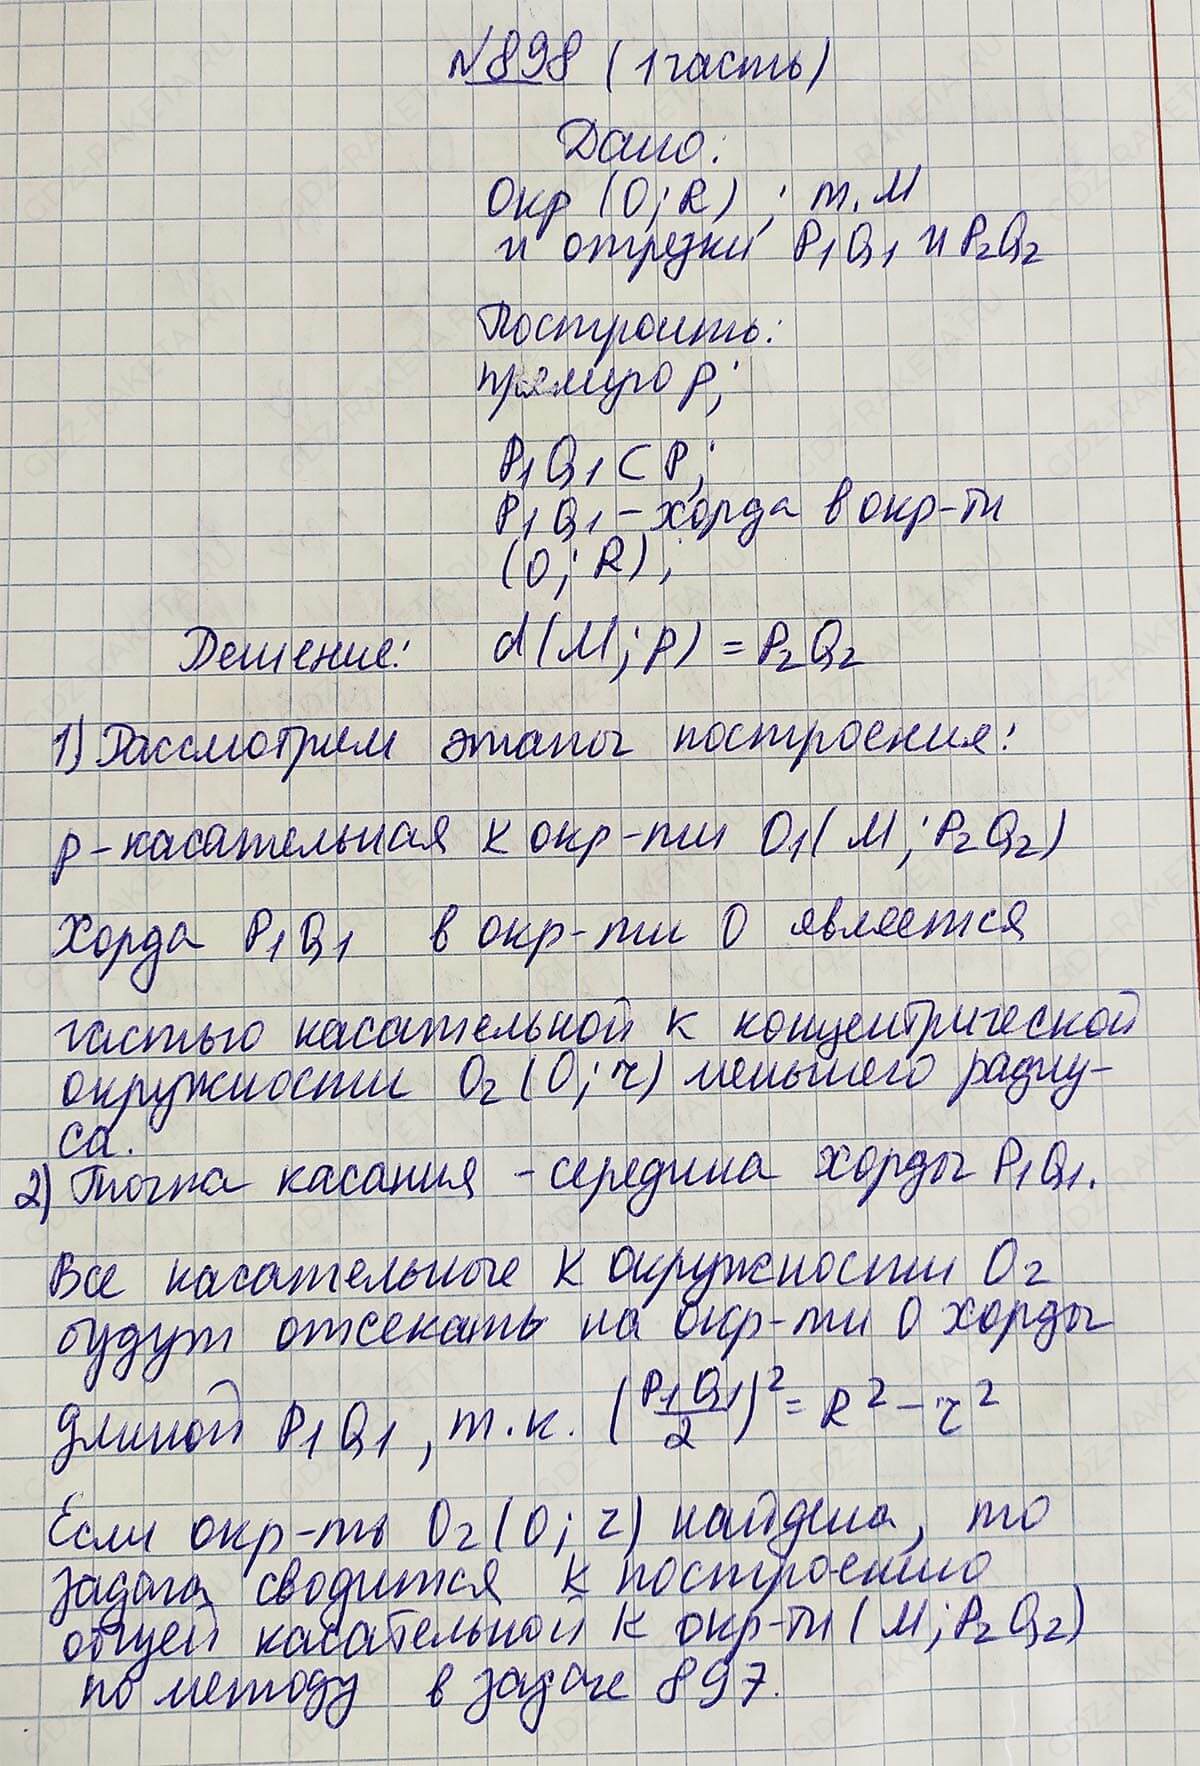 №898 (1 часть)
Дано:
Окр (O; R) ; т. M
и отрезки P₁Q₁ и P₂Q₂
Построить:
прямую p;
P₁Q₁ ⊂ P;
P₁Q₁ – хорда в окр-ти
(O; R);
Решение: d(M; p) = P₂Q₂
1) Рассмотрим этапы построения:
p – касательная к окр-ти O₁(M; P₂Q₂)
Хорда P₁Q₁ в окр-ти O является
частью касательной к концентрической
окружности O₂ (O; r) меньшего радиу-
са.
2) Точка касания – середина хорды P₁Q₁.
Все касательные к окружности O₂
будут отсекать на окр-ти O хорды
длиной P₁Q₁, т.к. (P₁Q₁/2)² = R² – r²
Если окр-ть O₂ (O; r) найдена, то
задача сводится к построению
общей касательной к окр-ти (M; P₂Q₂)
по методу в задаче 897.
GDZ-RAKETA.RU